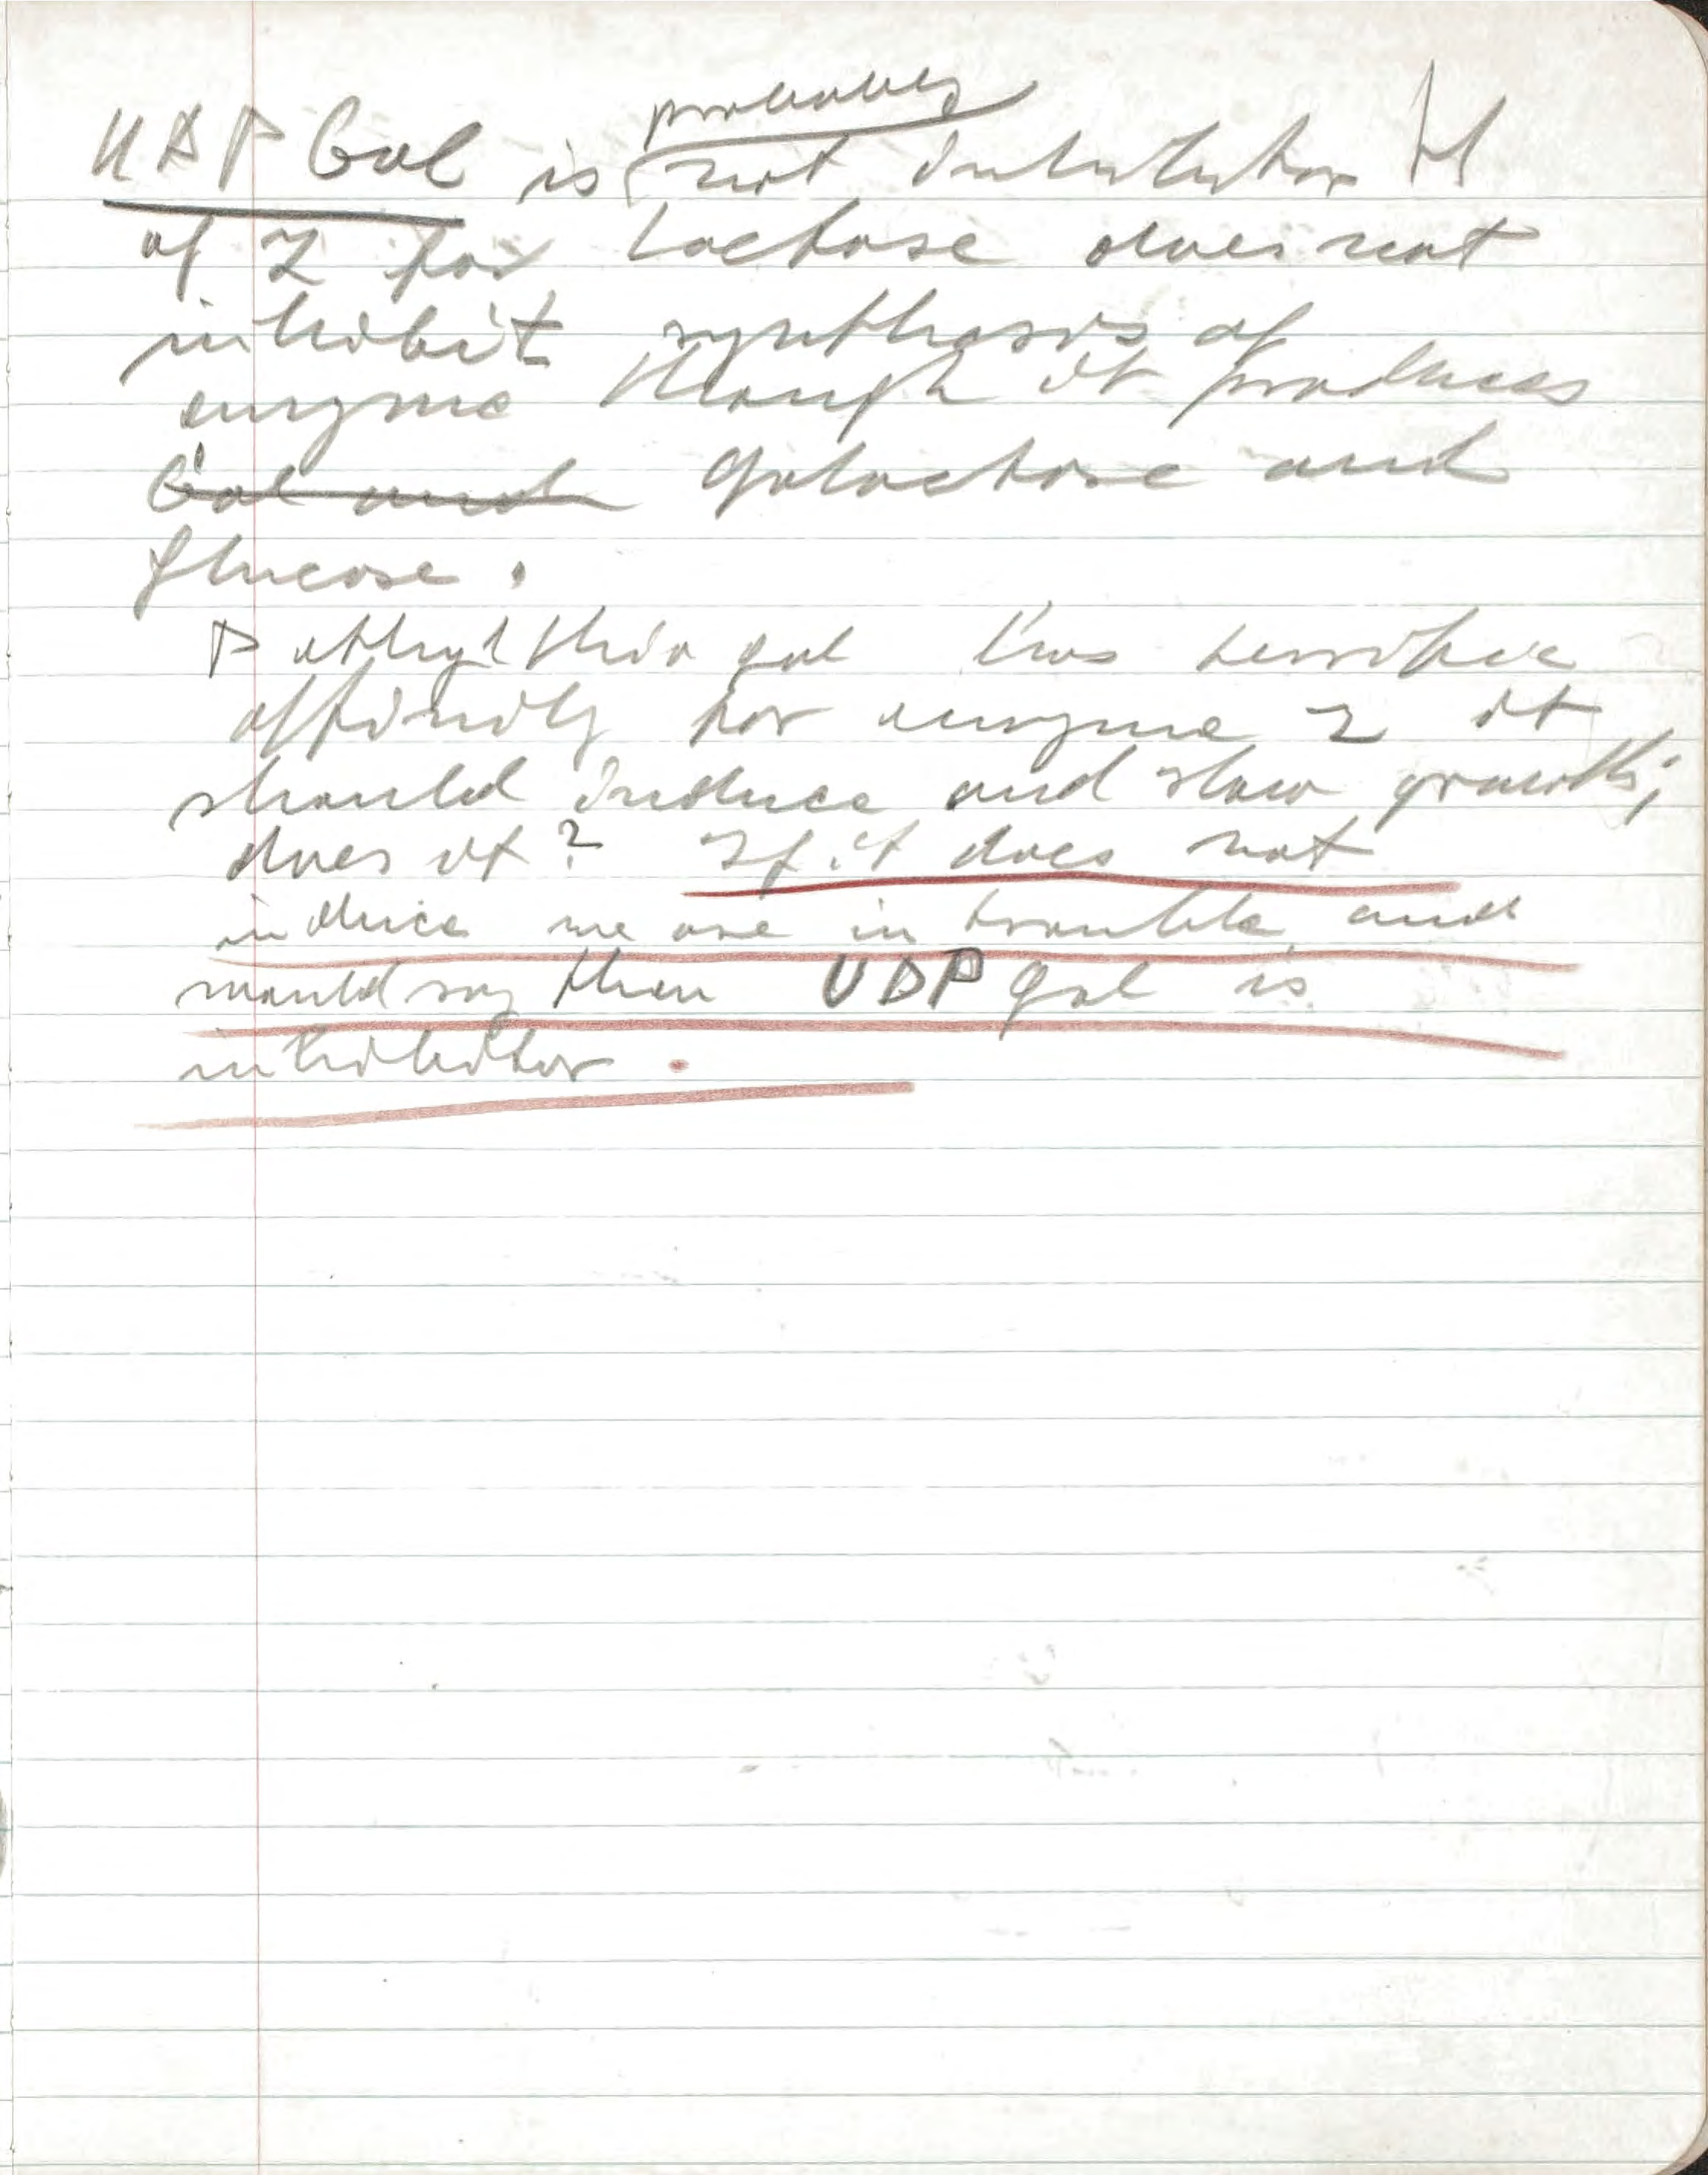 UDP Gal is probably not inhibitor H
of Z for Lactose does not
inhibit synthesis of
enzyme though it produces
Gal and galactose and
glucose.
P ethyl thio gal has terrific
affinity for enzyme Z it
should induce and slow growth;
does it? If it does not
induce we are in trouble and
would say then UDP gal is
inhibitor.